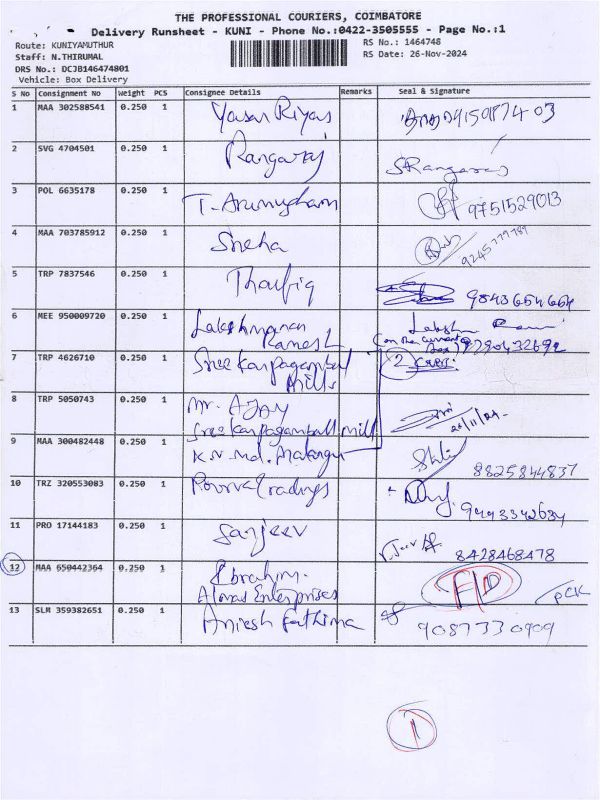 THE PROFESSIONAL COURIERS, COIMBATORE
Delivery Runsheet - KUNI - Phone No.:0422-3505555 - Page No.:1
Route: KUNIYAMUTHUR
RS No.: 1464748
Staff: N.THIRUMAL
RS Date: 26-Nov-2024
DRS No.: DCJB146474801
Vehicle: Box Delivery
S No Consignment No Weight PCS Consignee Details Remarks Seal & Signature
1 MAA 302588541 0.250 1 Yasar Riyas
2 SVG 4704501 0.250 1 Rangaraj SRangaraj
3 POL 6635178 0.250 1 T. Arumugham 9751529013
4 MAA 703785912 0.250 1 Sneha 9245779789
5 TRP 7837546 0.250 1 Thaufiq 9843654664
6 MEE 950009720 0.250 1 Lakshmanan Lakshm
Ramesh
7 TRP 4626710 0.250 1 Sree Karpagambal 2
Mills
8 TRP 5050743 0.250 1 Mr. AJAY
Sree Karpagamball Mill 26/11/24
9 MAA 300482448 0.250 1 K.N. Md. 8825844837
10 TRZ 320553083 0.250 1 Poorva Tradings 9443342634
11 PRO 17144183 0.250 1 Sanjeev 8428468478
12 MAA 650442364 0.250 1 Ibrahim. F/D
Almas Enterprises PCK
13 SLM 359382651 0.250 1 Anish Fathima 9087330909
1